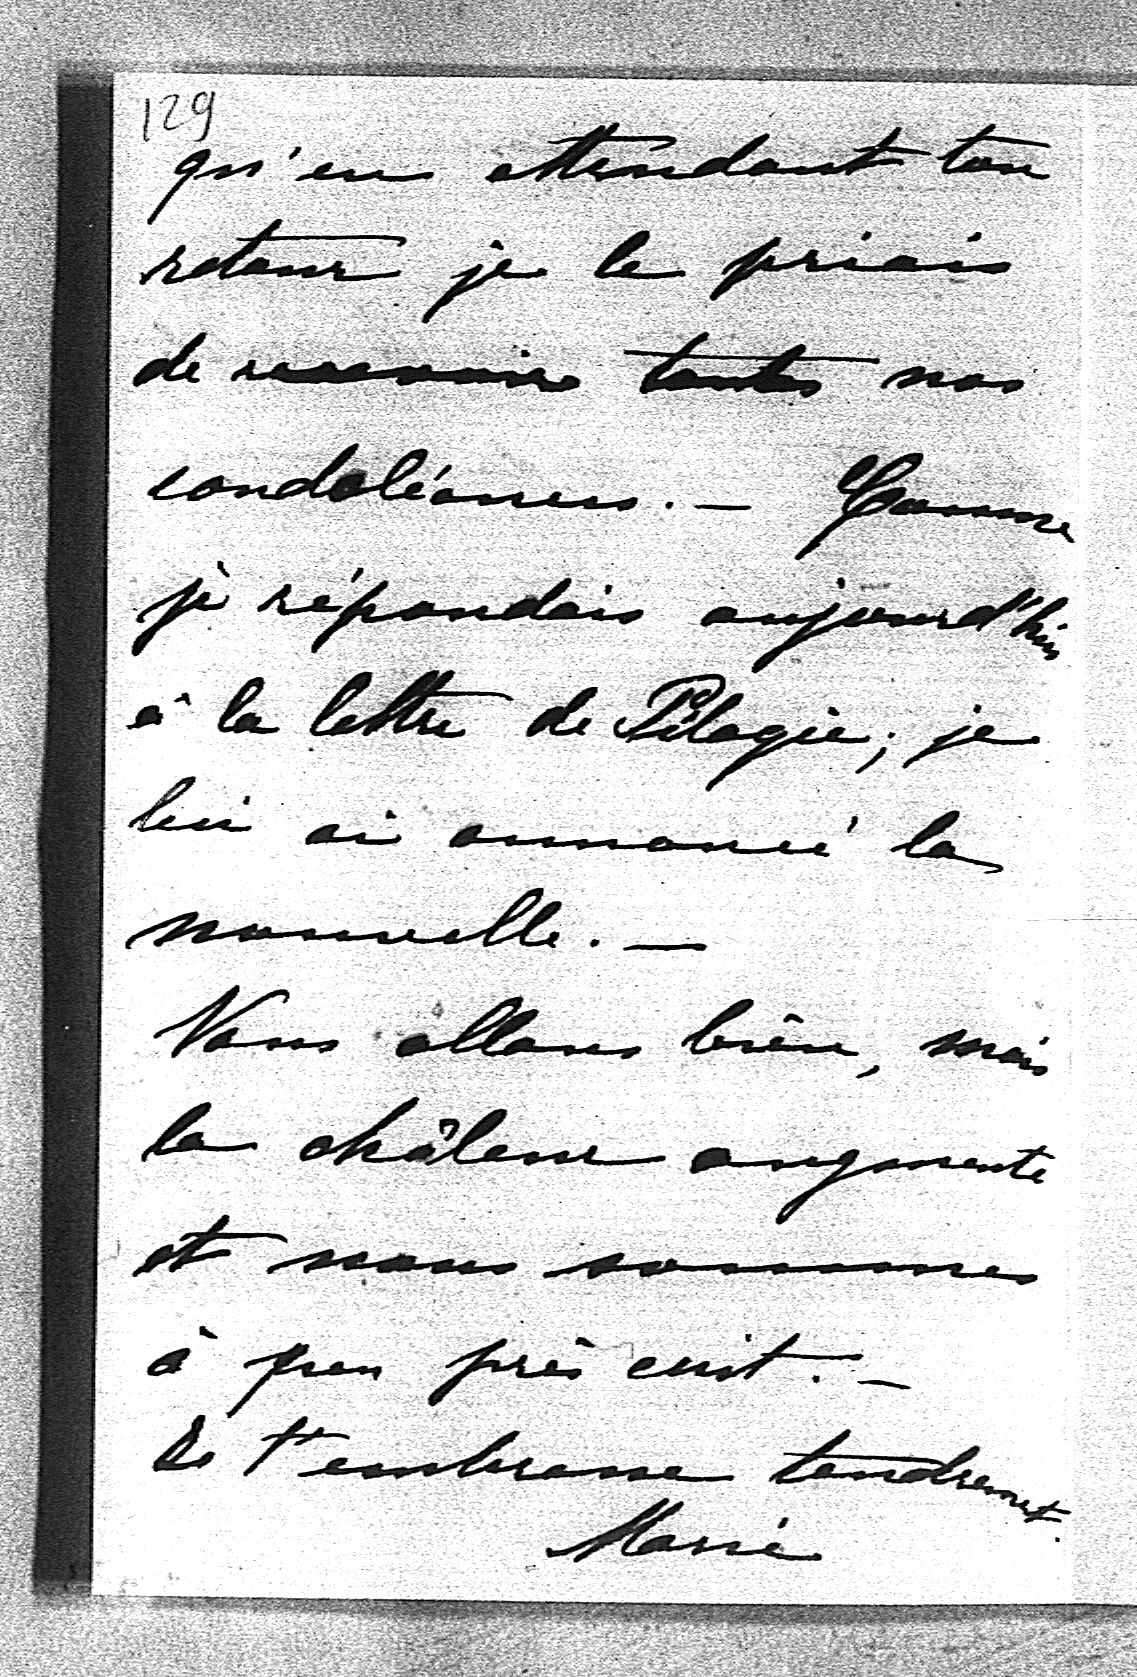 129
qu'en attendant ton
retour je le priais
de recevoir toutes nos
condoléances. — Comme
je répondais aujourd'hui
à la lettre de Pélagie, je
lui ai annoncé la
nouvelle. —
Nous allons bien, mais
la châleur augmente
et nous sommes
à peu près cuit. —
Je t'embrasse tendrement.
Marie